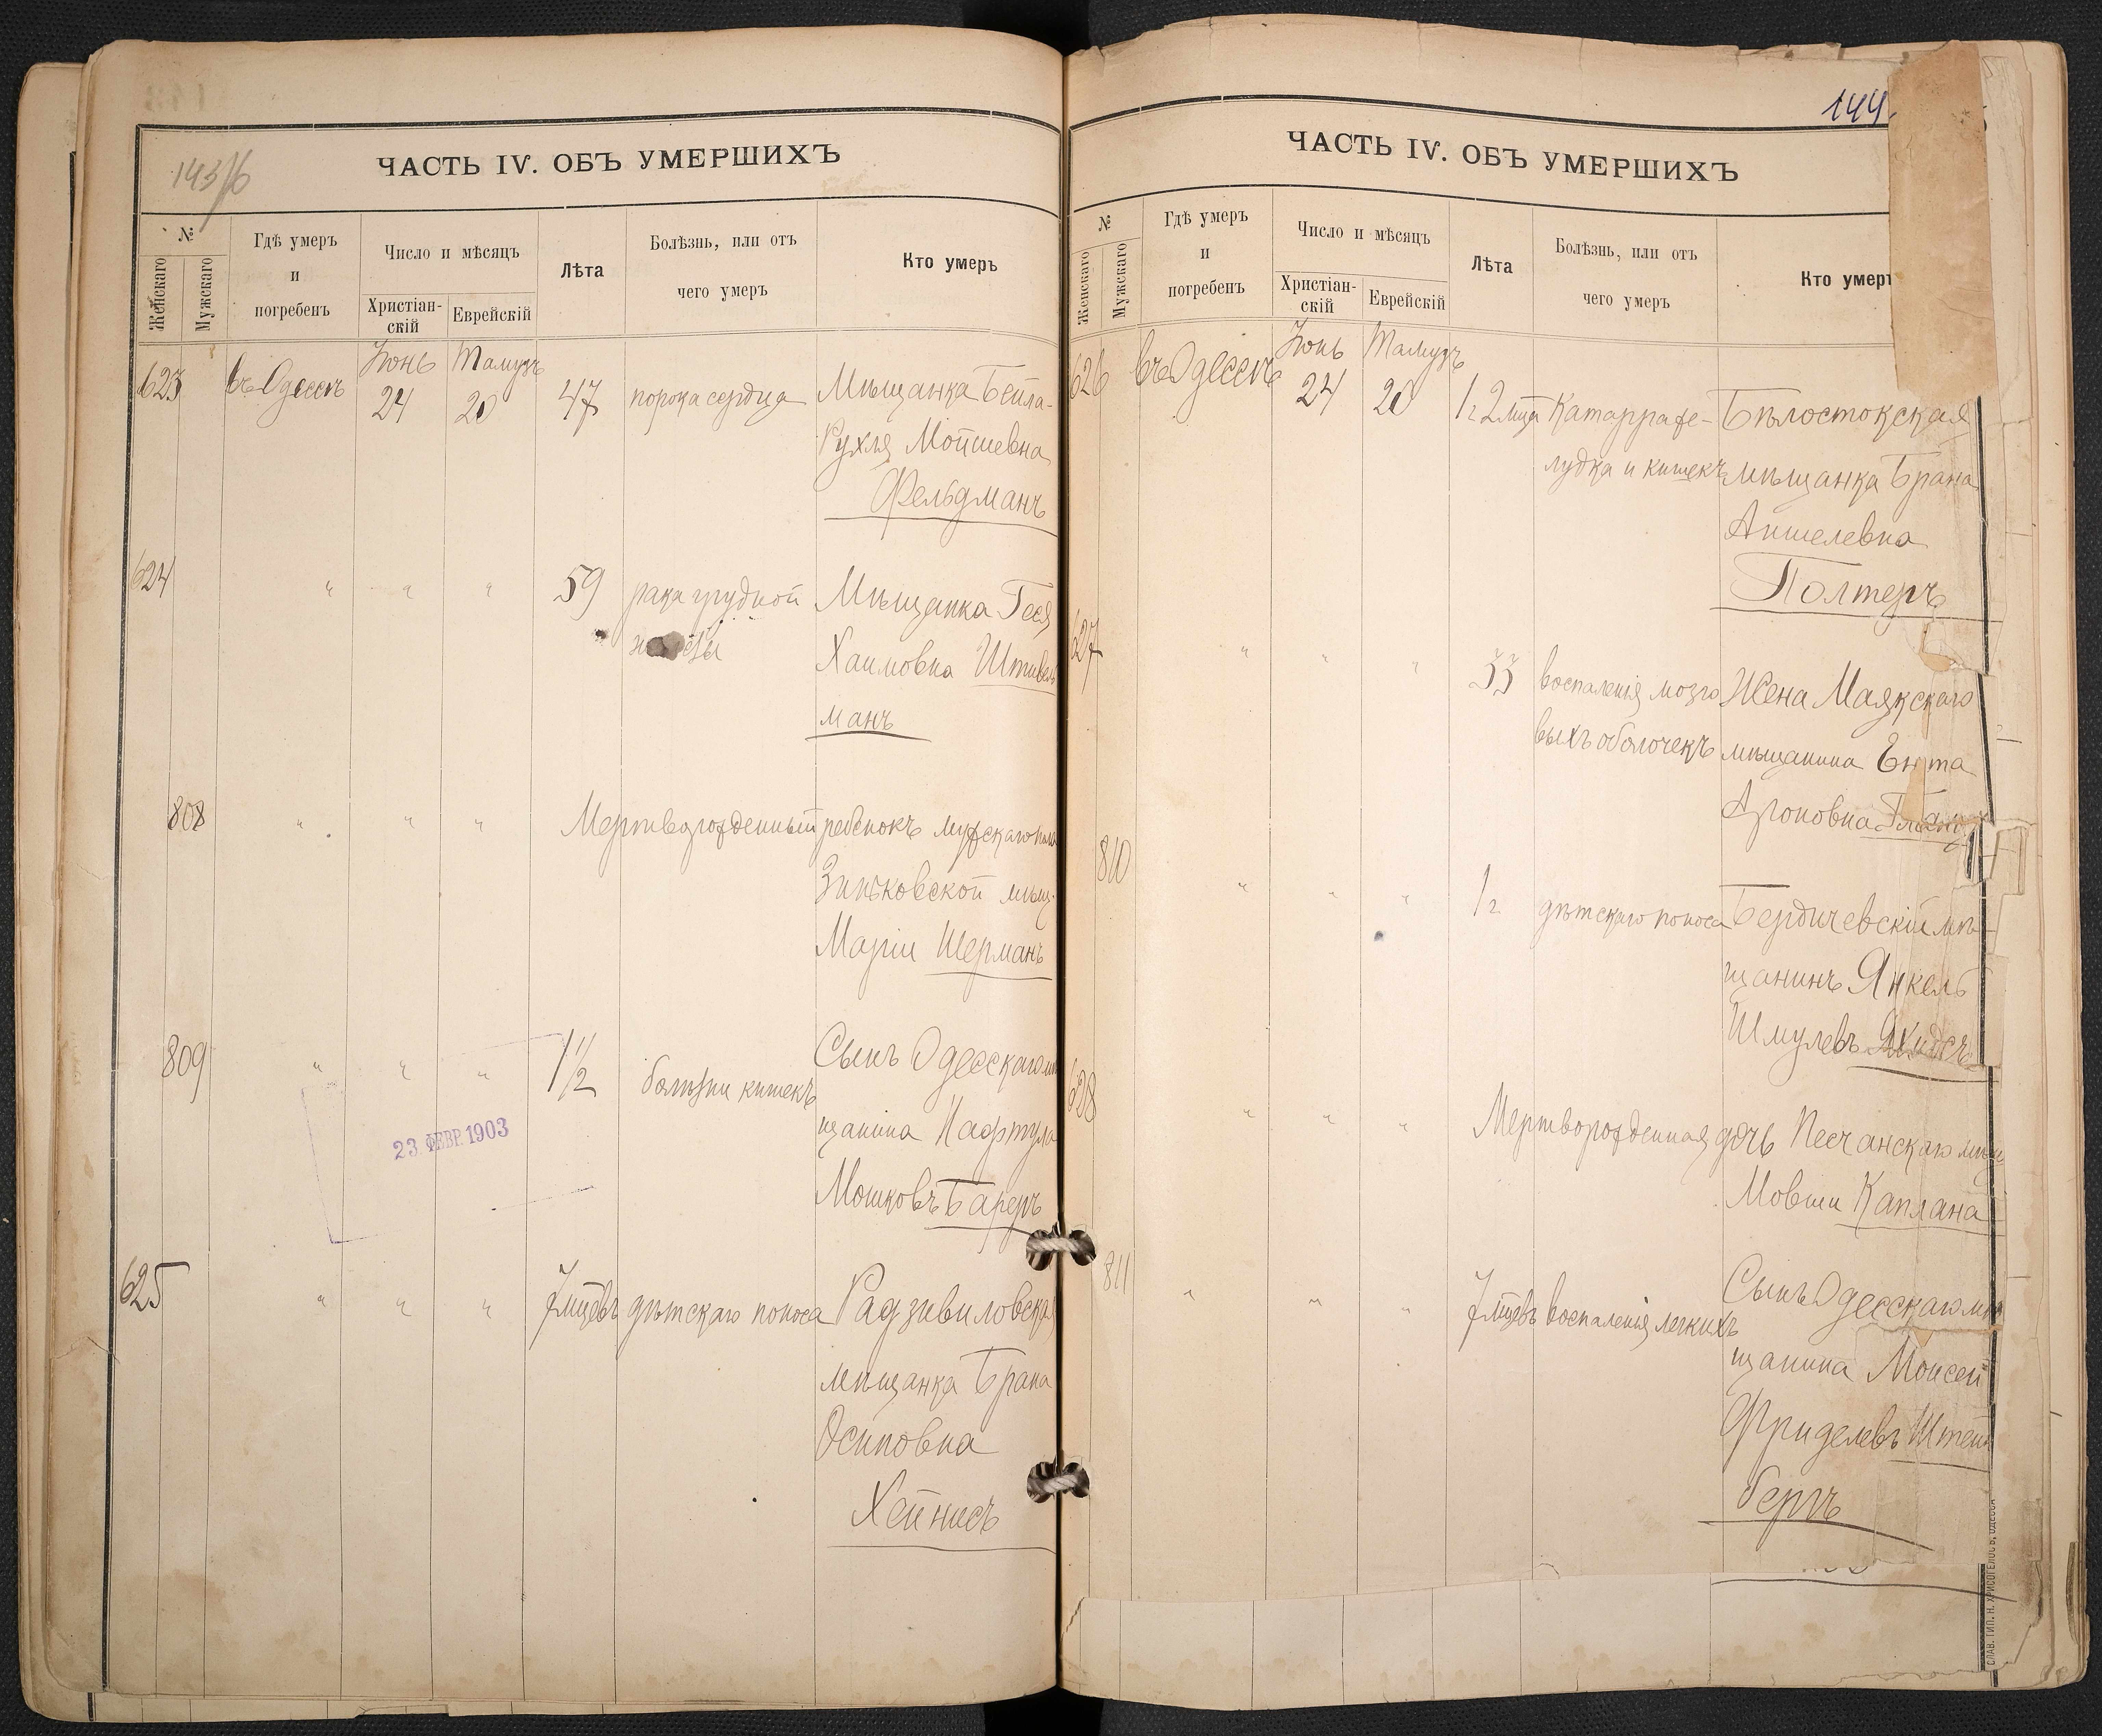 143/6
ЧАСТЬ IV. ОБЪ УМЕРШИХЪ
№
Женскаго
Мужскаго
Гдѣ умеръ
и
погребенъ
Число и мѣсяцъ
Христіан-
скій
Еврейскій
Лѣта
Болѣзнь, или отъ
чего умеръ
Кто умеръ
623 въ Одессѣ Іюнь 24 Тамузъ 20 47 порока сердца Мѣщанка Бейла-
Рухля Мойшевна
Фельдманъ
624 " " " 59 рака грудной Мѣщанка Геся
Хаимовна Штивель
манъ
808 " " " Мертворожденный ребенокъ мужскаго пола
Зиньковской мѣщ.
Маріи Шерманъ
809 " " " 1½ болѣзни кишекъ Сынъ Одесскаго мѣ
щанина Нафтула
Мошковъ Бареръ
23 ФЕВР. 1903
625 " " " 7 мцевъ дѣтскаго поноса Радзивиловская
мѣщанка Брана
Осиповна
Хейнисъ
144.
ЧАСТЬ IV. ОБЪ УМЕРШИХЪ
№
Женскаго
Мужскаго
Гдѣ умеръ
и
погребенъ
Число и мѣсяцъ
Христіан-
скій
Еврейскій
Лѣта
Болѣзнь, или отъ
чего умеръ
Кто умеръ
626 въ Одессѣ Іюнь 24 Тамузъ 20 1 г 2 мца Катарра же- Бѣлостокская
лудка и кишекъ мѣщанка Брана
Аншелевна
Полтеръ
627 " " " 33 воспаленія мозго Жена Маякскаго
выхъ оболочекъ мѣщанина Ента
Ароновна
810 " " " 1 г дѣтскаго поноса Бердичевскій мѣ-
щанинъ Янкель
Шмулевъ
628 " " " Мертворожденная дочь Песчанскаго мѣщ
Мовши Каплана
811 " " " 7 мцевъ воспаленія легкихъ Сынъ Одесскаго мѣ
щанина Моисей
Фриделевъ Штейн
бергъ
СЛАВ. ТИП. Н. ХРИСОГЕЛОСЪ, ОДЕССА